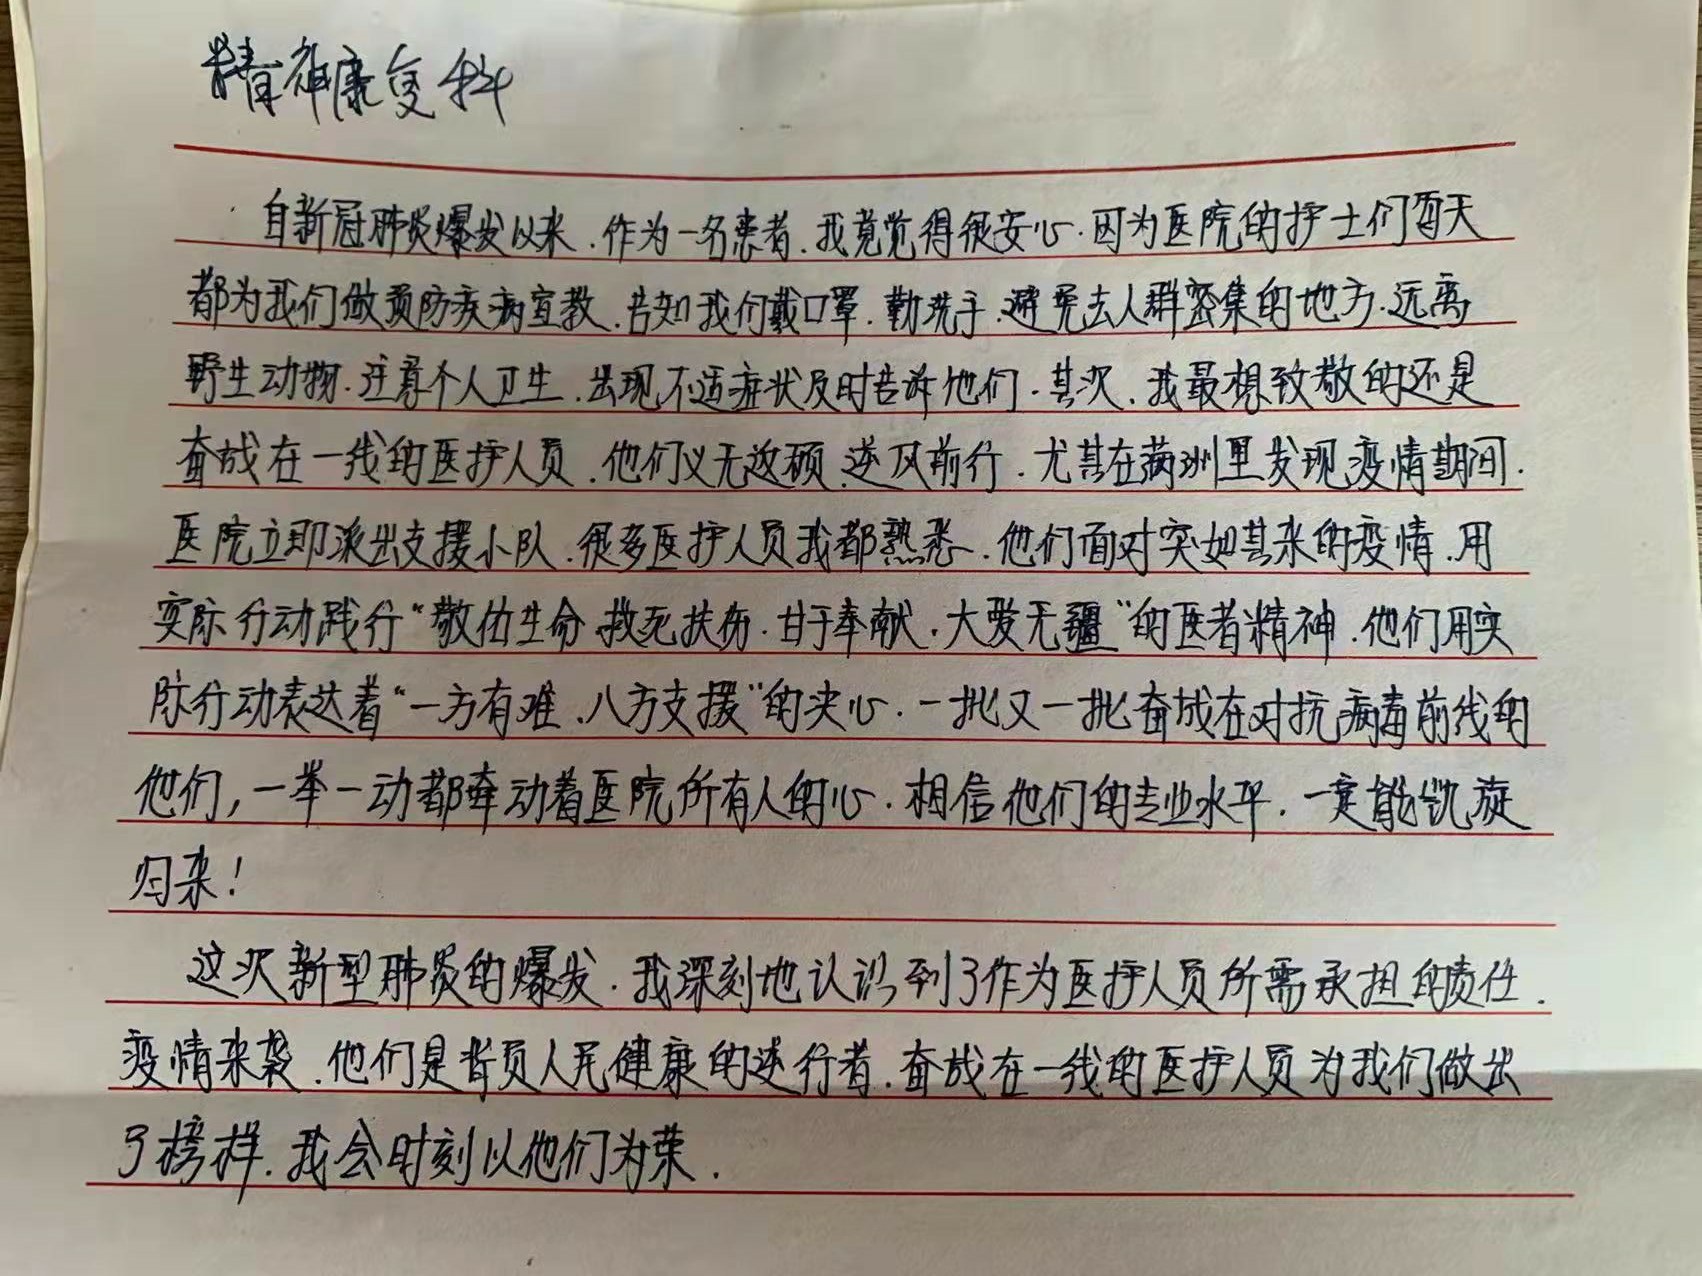 精神康复科
自新冠肺炎爆发以来.作为一名患者.我竟觉得很安心.因为医院的护士们每天
都为我们做预防疾病宣教.告知我们戴口罩.勤洗手.避免去人群密集的地方.远离
野生动物.注意个人卫生.出现不适症状及时告诉他们.其次.我最想致敬的还是
奋战在一线的医护人员.他们义无返顾.逆风前行.尤其在满洲里发现疫情期间.
医院立即派出支援小队.很多医护人员我都熟悉.他们面对突如其来的疫情.用
实际行动践行“敬佑生命.救死扶伤.甘于奉献.大爱无疆”的医者精神.他们用实
际行动表达着“一方有难.八方支援”的决心.一批又一批奋战在对抗病毒前线的
他们,一举一动都牵动着医院所有人的心.相信他们的专业水平.一定能凯旋
归来!
这次新型肺炎的爆发.我深刻地认识到了作为医护人员所需承担的责任.
疫情来袭.他们是肩负人民健康的逆行者.奋战在一线的医护人员为我们做出
了榜样.我会时刻以他们为荣.